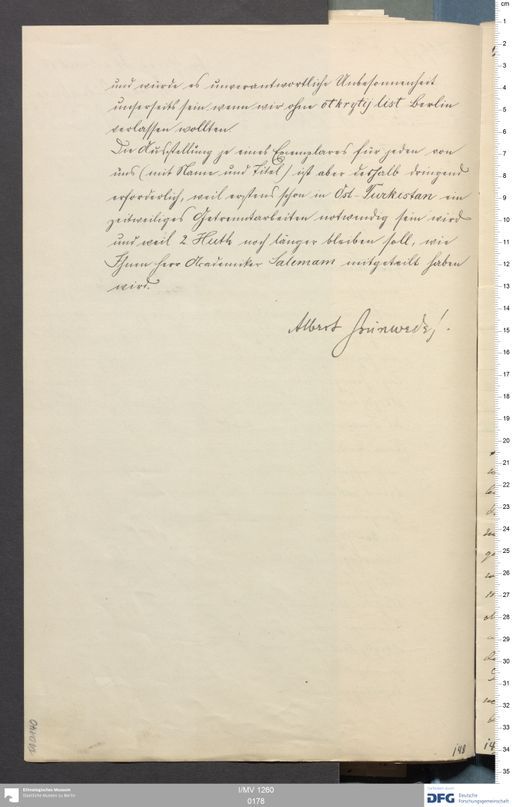 und würde es unverantwortliche Unbesonnenheit
unsererseits sein, wenn wir ohne otkrytij list Berlin
verlassen wollten.
Die Ausstellung je eines Exemplares für jeden von
uns (mit Name und Titel) ist aber deshalb dringend
erforderlich, weil erstens schon in Ost-Turkestan ein
zeitweiliges Getrenntarbeiten notwendig sein wird
und weil 2 Huth noch länger bleiben soll, wie
Ihnen Herr Academiker Salemann mitgeteilt haben
wird.
Albert Grünwedel.
148
Ethnologisches Museum
Staatliche Museen zu Berlin
I/MV 1260
0178
DFG Deutsche
Forschungsgemeinschaft